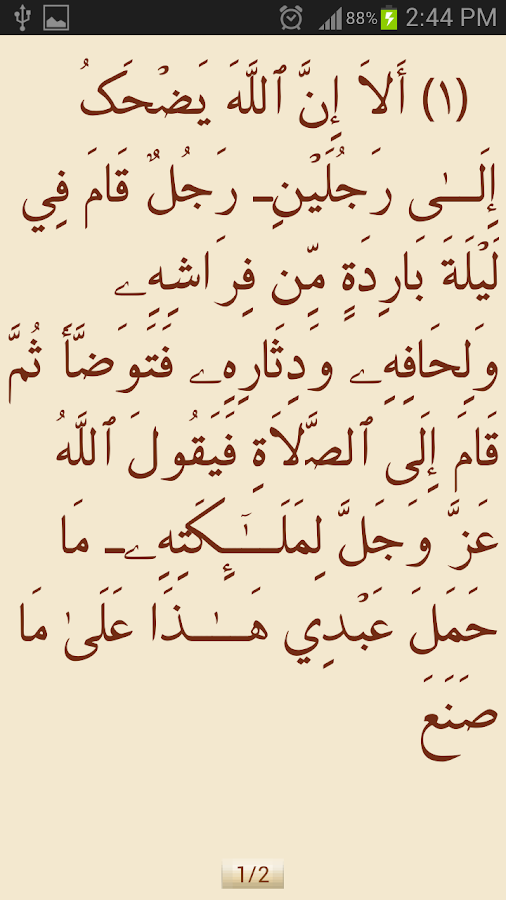 88% 2:44 PM
(١) أَلاَ إِنَّ ٱللَّهَ يَضْحَكُ
إِلَـــىٰ رَجُلَيْنِـ رَجُلٌ قَامَ فِي
لَيْلَةَ بَارِدَةٍ مِّن فِرَاشِهِۦ
وَلِحَافِهِۦ وَدِثَارِهِۦ فَتَوَضَّأَ ثُمَّ
قَامَ إِلَى ٱلصَّلاَةِ فَيَقُولَ ٱللَّهُ
عَزَّ وَجَلَّ لِمَلَـــٰٓئِكَتِهِۦـ مَا
حَمَلَ عَبْدِي هَـــٰذَا عَلَىٰ مَا
صَنَعَ
1/2